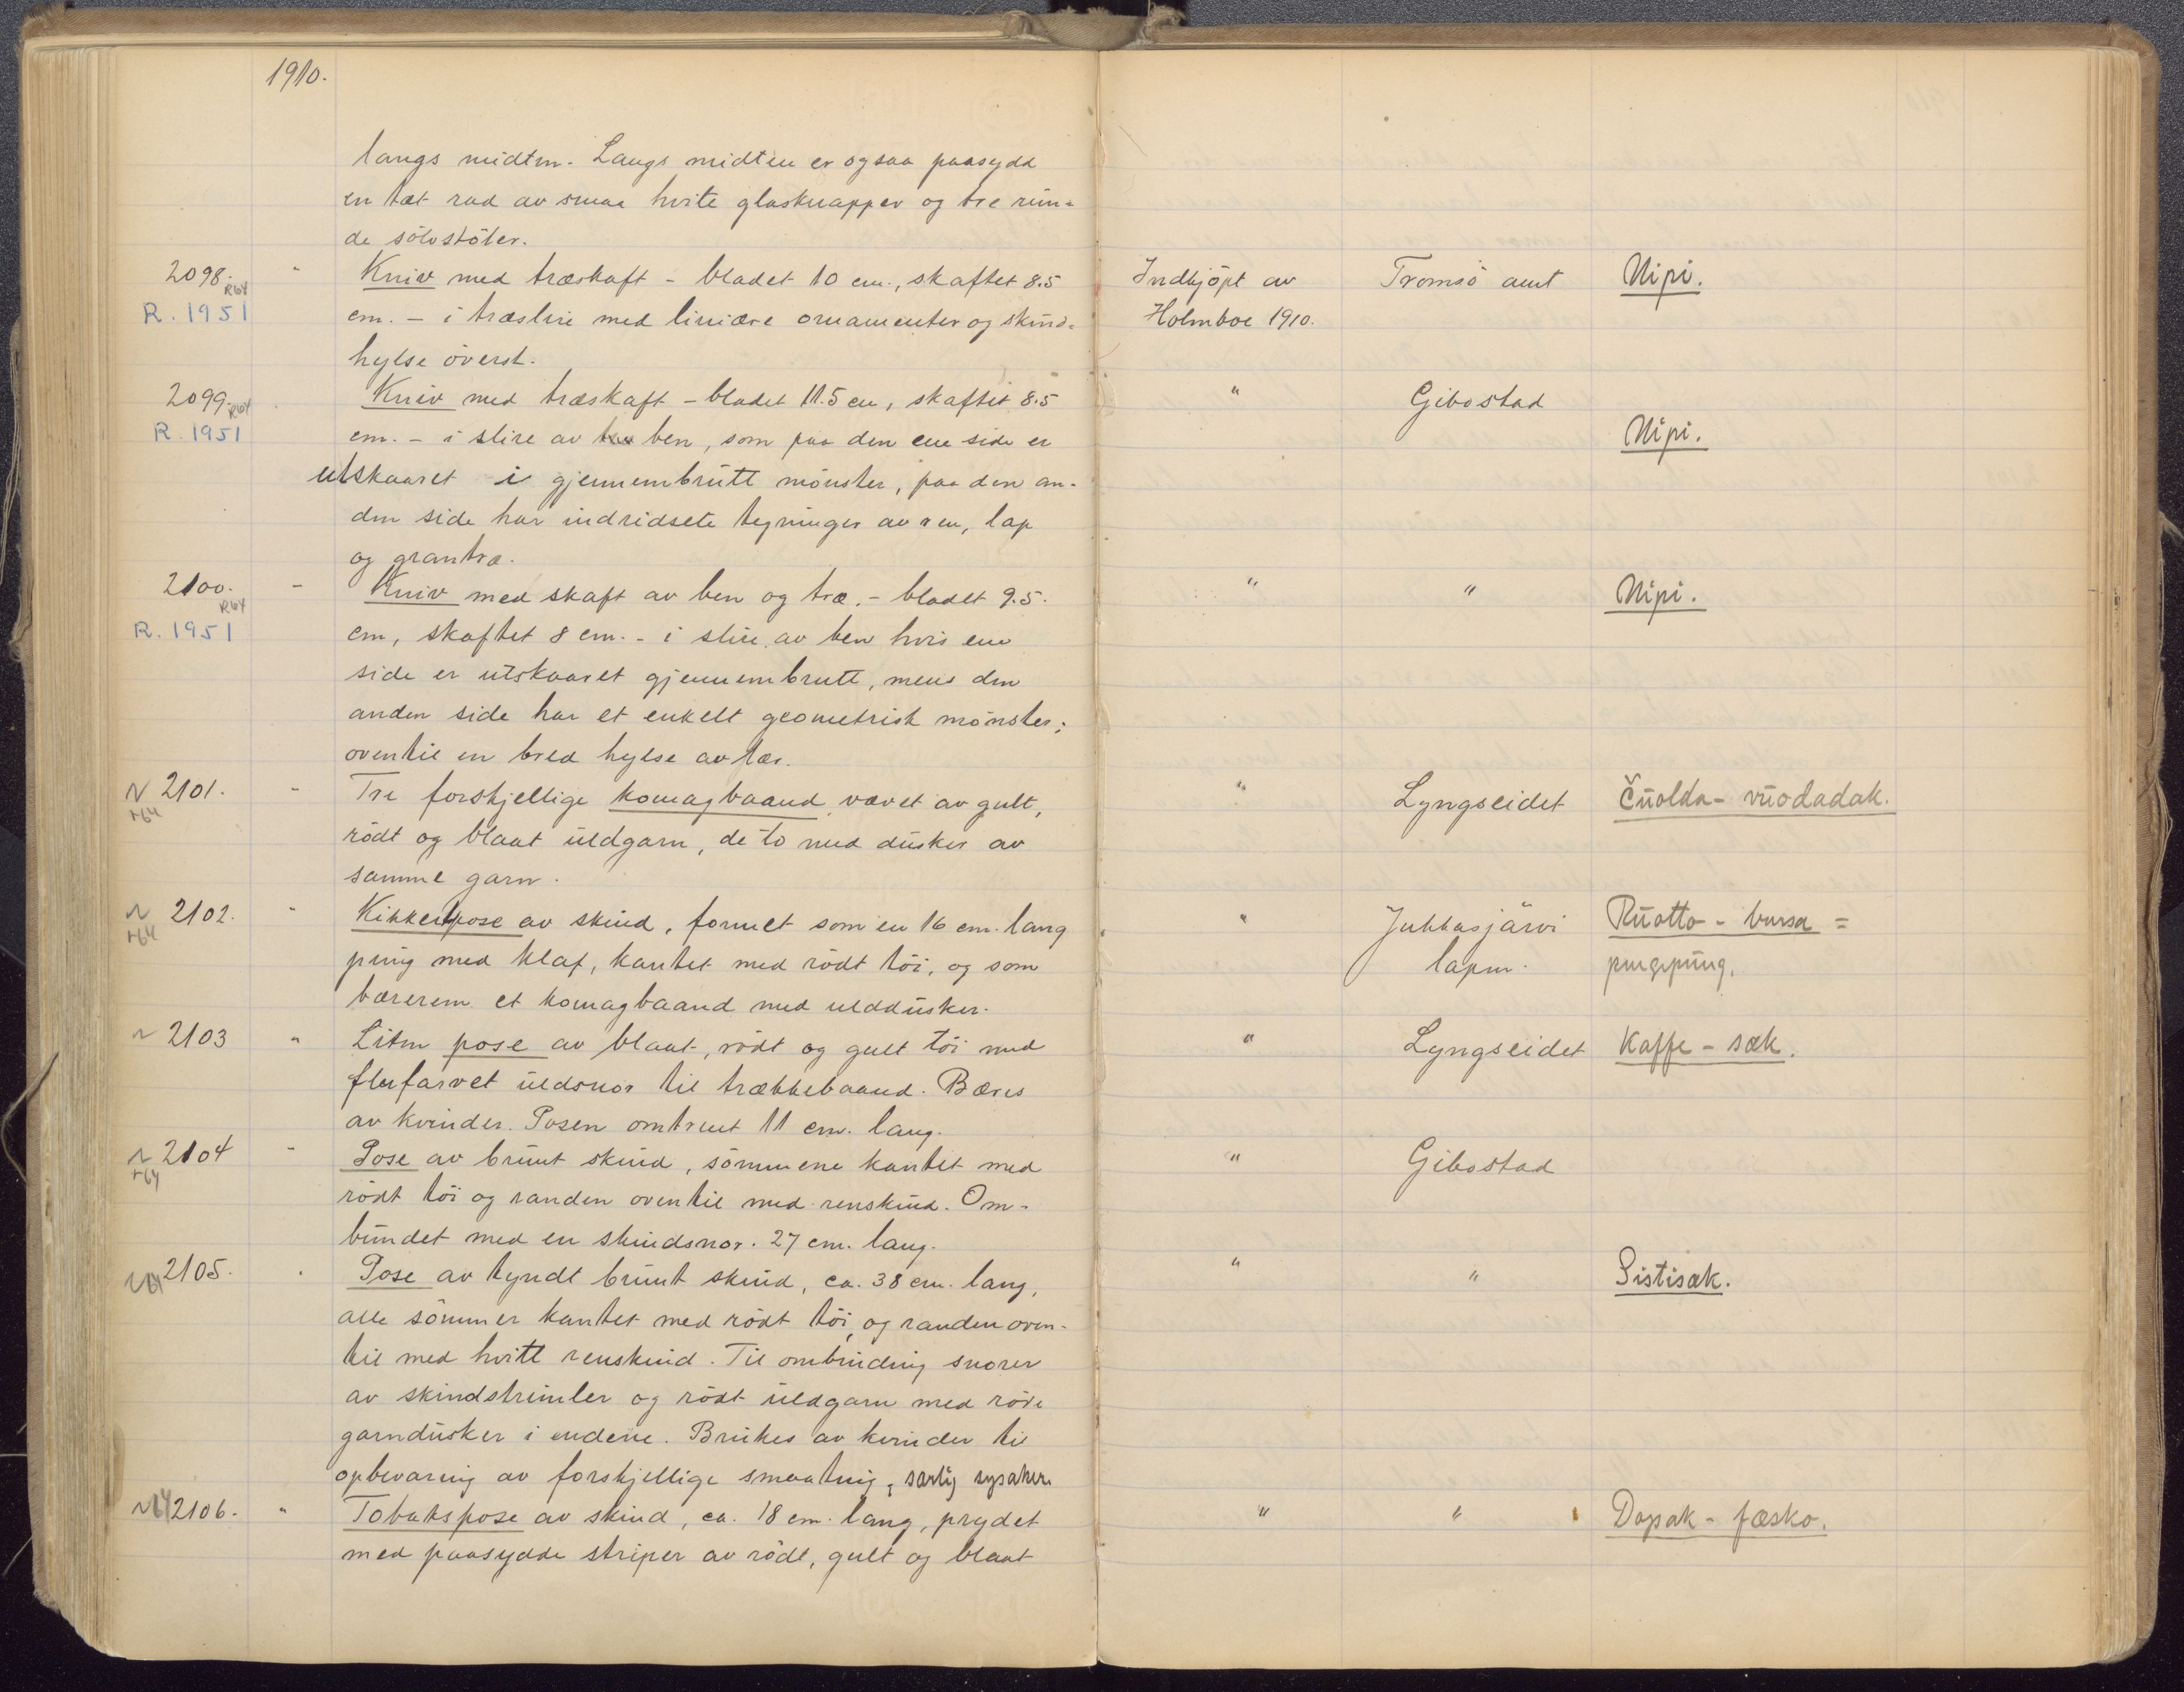 1910.
langs midten. Langs midten er ogsaa paasydd
en tæt rad av smaa hvite glasknapper og tre run=
de sölvstöler.
2098. R64 " Kniv med træskaft - bladet 10 cm., skaftet 8.5 Indkjöpt av Tromsö amt Nipi.
R. 1951 cm. - i træslire med liniære ornamenter og skind= Holmboe 1910.
hylse överst.
2099. R64 Kniv med træskaft - bladet 11.5 cm, skaftet 8.5 " Gibostad
R. 1951 cm. - i slire av ben, som paa den ene side er Nipi.
utskaaret i gjennembrutt mönster, paa den an-
den side har indridsete tegninger av ren, lap
og grantræ.
2100. R64 " Kniv med skaft av ben og træ. - bladet 9.5. " " Nipi.
R. 1951 cm, skaftet 8 cm. - i slire av ben hvis ene
side er utskaaret gjennembrutt, mens den
anden side har et enkelt geometrisk mönster;
oventil en bred hylse av lær.
N 2101. " Tre forskjellige komagbaand vævet av gult, " Lyngseidet Čuolda-vuodadak.
r64 rödt og blaat uldgarn, de to med dusker av
samme garn.
N 2102. " Kikkertpose av skind, formet som en 16 cm. lang " Jukkasjärvi Ruotto-bursa =
r64 pung med klaf, kantet med rödt töi, og som lapm. pengepung.
bærerem et komagbaand med ulddusker.
N 2103 " Liten pose av blaat, rödt og gult töi med " Lyngseidet Kaffe-sæk.
flerfarvet uldsnor til trækkebaand. Bæres
av kvinder. Posen omtrent 11 cm. lang.
N 2104 " Pose av brunt skind, sömmene kantet med " Gibostad
r64 rödt töi og randen oventil med renskind. Om-
bundet med en skindsnor. 27 cm. lang.
N64 2105. " Pose av tyndt brunt skind, ca. 38 cm. lang, " " Sistisæk.
alle sömmer kantet med rödt töi, og randen oven-
til med hvitt renskind. Til ombinding snorer
av skindstrimler og rödt uldgarn med röde
garndusker i endene. Brukes av kvinder til
opbevaring av forskjellige smaating, særlig sysaker.
N64 2106. " Tobakspose av skind, ca. 18 cm. lang, prydet " " Dopak-fæsko.
med paasydde striper av rödt, gult og blaat